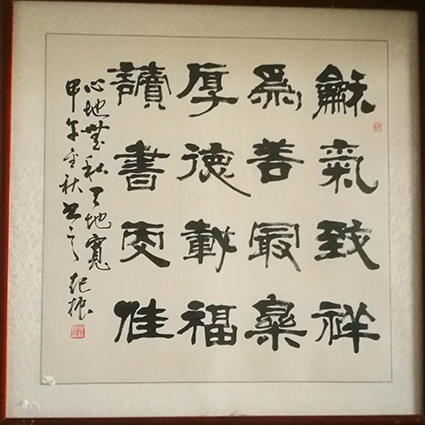 龢氣致祥
為善最樂
厚德載福
讀書更佳
心地無私天地寬
甲午金秋书之 纪振